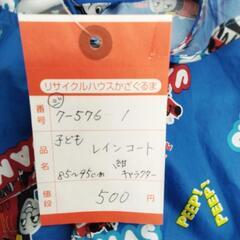 リサイクルハウスかざぐるま
番号 7-576 1
品名 子ども レインコート
85~95cm 紺 キャラクター
値段 500円
PEEP!
PEEP!